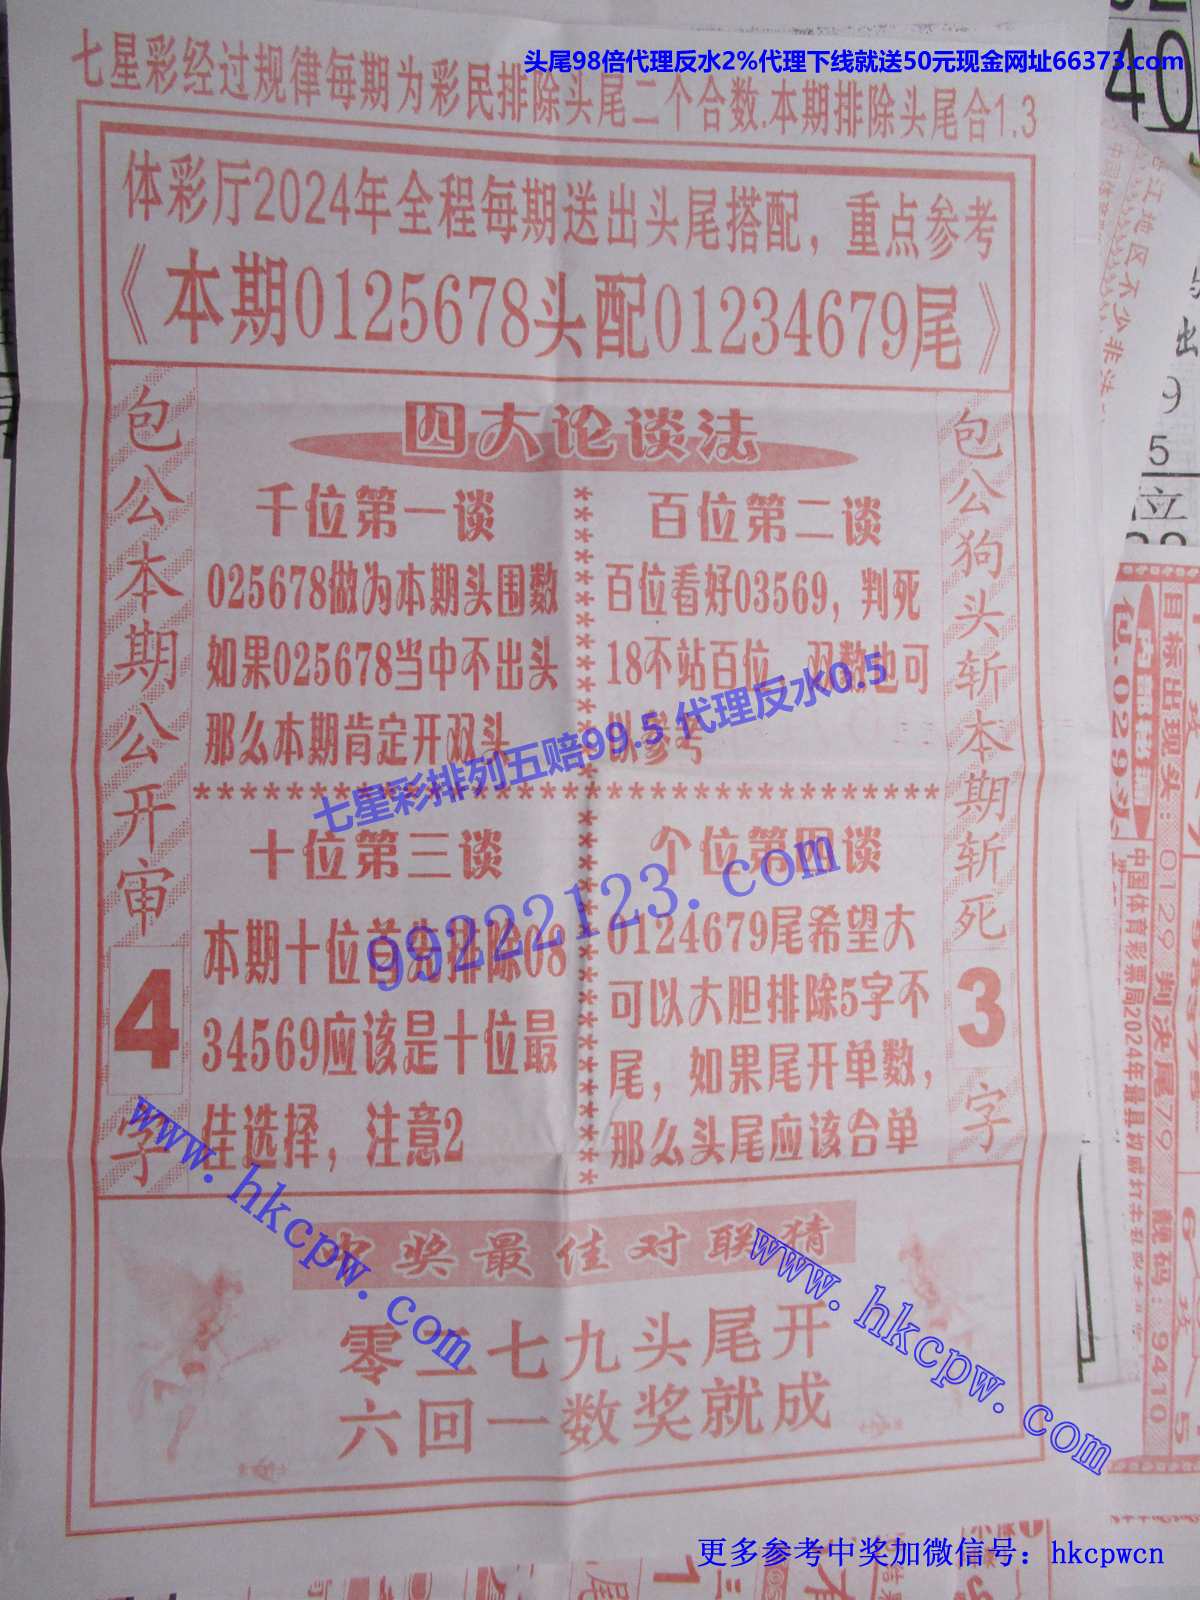 头尾98倍代理反水2%代理下线就送50元现金网址66373.com
七星彩经过规律每期为彩民排除头尾二个合数.本期排除头尾合1.3
体彩厅2024年全程每期送出头尾搭配，重点参考
《本期0125678头配01234679尾》
包公本期公开审
4
字
四大论谈法
千位第一谈
025678做为本期头围数
如果025678当中不出头
那么本期肯定开双头
百位第二谈
百位看好03569，判死
18不站百位，双数也可
以参考
七星彩排列五赔99.5 代理反水0.5
****************************************
十位第三谈
本期十位首先排除08
34569应该是十位最
佳选择，注意2
个位第四谈
0124679尾希望大
可以大胆排除5字不
尾，如果尾开单数，
那么头尾应该合单
99222123.com
包公狗头斩本期斩死
3
字
www.hkcpw.com
www.hkcpw.com
奖最佳对联猜
零二七九头尾开
六回一数奖就成
更多参考中奖加微信号：hkcpwcn
40
9
5
位
目标出现头：0129判决尾79
靓码：9410
包.029头